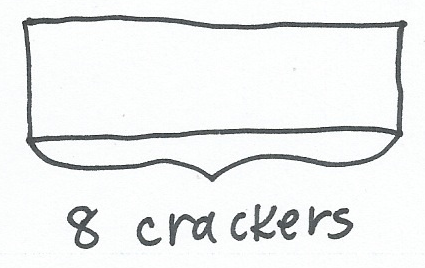 8 crackers